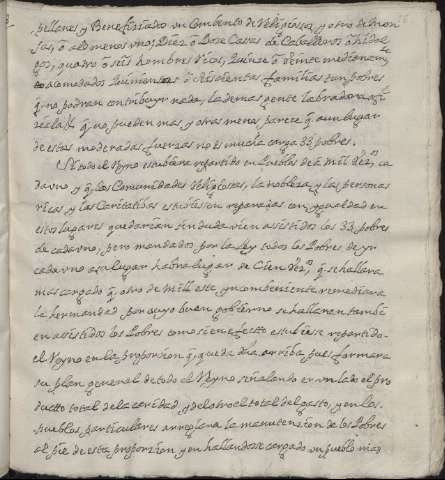 pellanes, y Beneficiados un Combento de Religiossos, y otro de Mon
jas, ò al de menos uno, Diez, ò Doze Casas de Caballeros ò hidal
gos, quatro ò seis hombres ricos, Quinze ò Veinte medianam.te
acomodados Quinientas ò seiscientas familias tan pobres
q.e no podran contribuyr nada, la demas gente labradora y
q.e no pueden mas, y otras menos parece q.e a un lugar
de estas moderadas fuerzas no es mucha carga 33 pobres.
Si todo el Reyno estubiera repartido en Pueblos de à mil Vez.os ca
da uno, y q.e las Comunidades Religiosas, la nobleza, y las personas
ricas, y las Caritatibas estubiesen reparadas con igualdad en
estos lugares quedarian sin duda vien assistidos los 33 pobres
de cada uno, pero mandados por la Ley todos los Pobres de yr
cada uno a su lugar habra lugar de Cien Vez.os q.e se hallara
mas cargado q.e otro de mill este yncombeniente remediara
la hermandad por cuyo buen gobierno se hallaran tambie
en assistidos los Pobres como si en efectto estubiese repartido
el Reyno en la proporsion q.e queda dha arriba pues formara
su plan general de todo el Reyno señalando en un lado el pro
ductto total de la caridad, y del otro el total del gasto, y en los
pueblos particulares arreglara la manutension de los Pobres
al pie de esta proporsion, y en hallandose cargado un pueblo mas